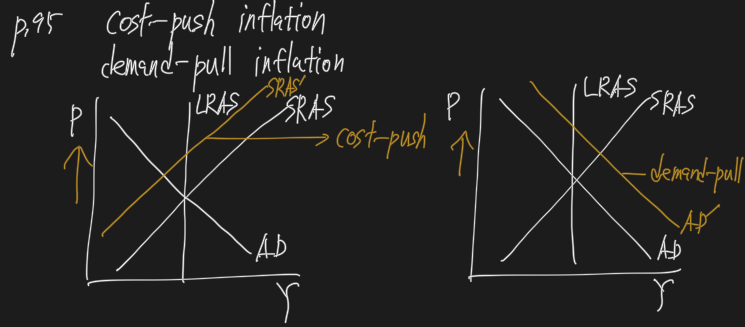 p.95 cost-push inflation
demand-pull inflation
P
LRAS
SRAS'
SRAS
cost-push
AD
Y
P
LRAS
SRAS
demand-pull
AD'
AD
Y